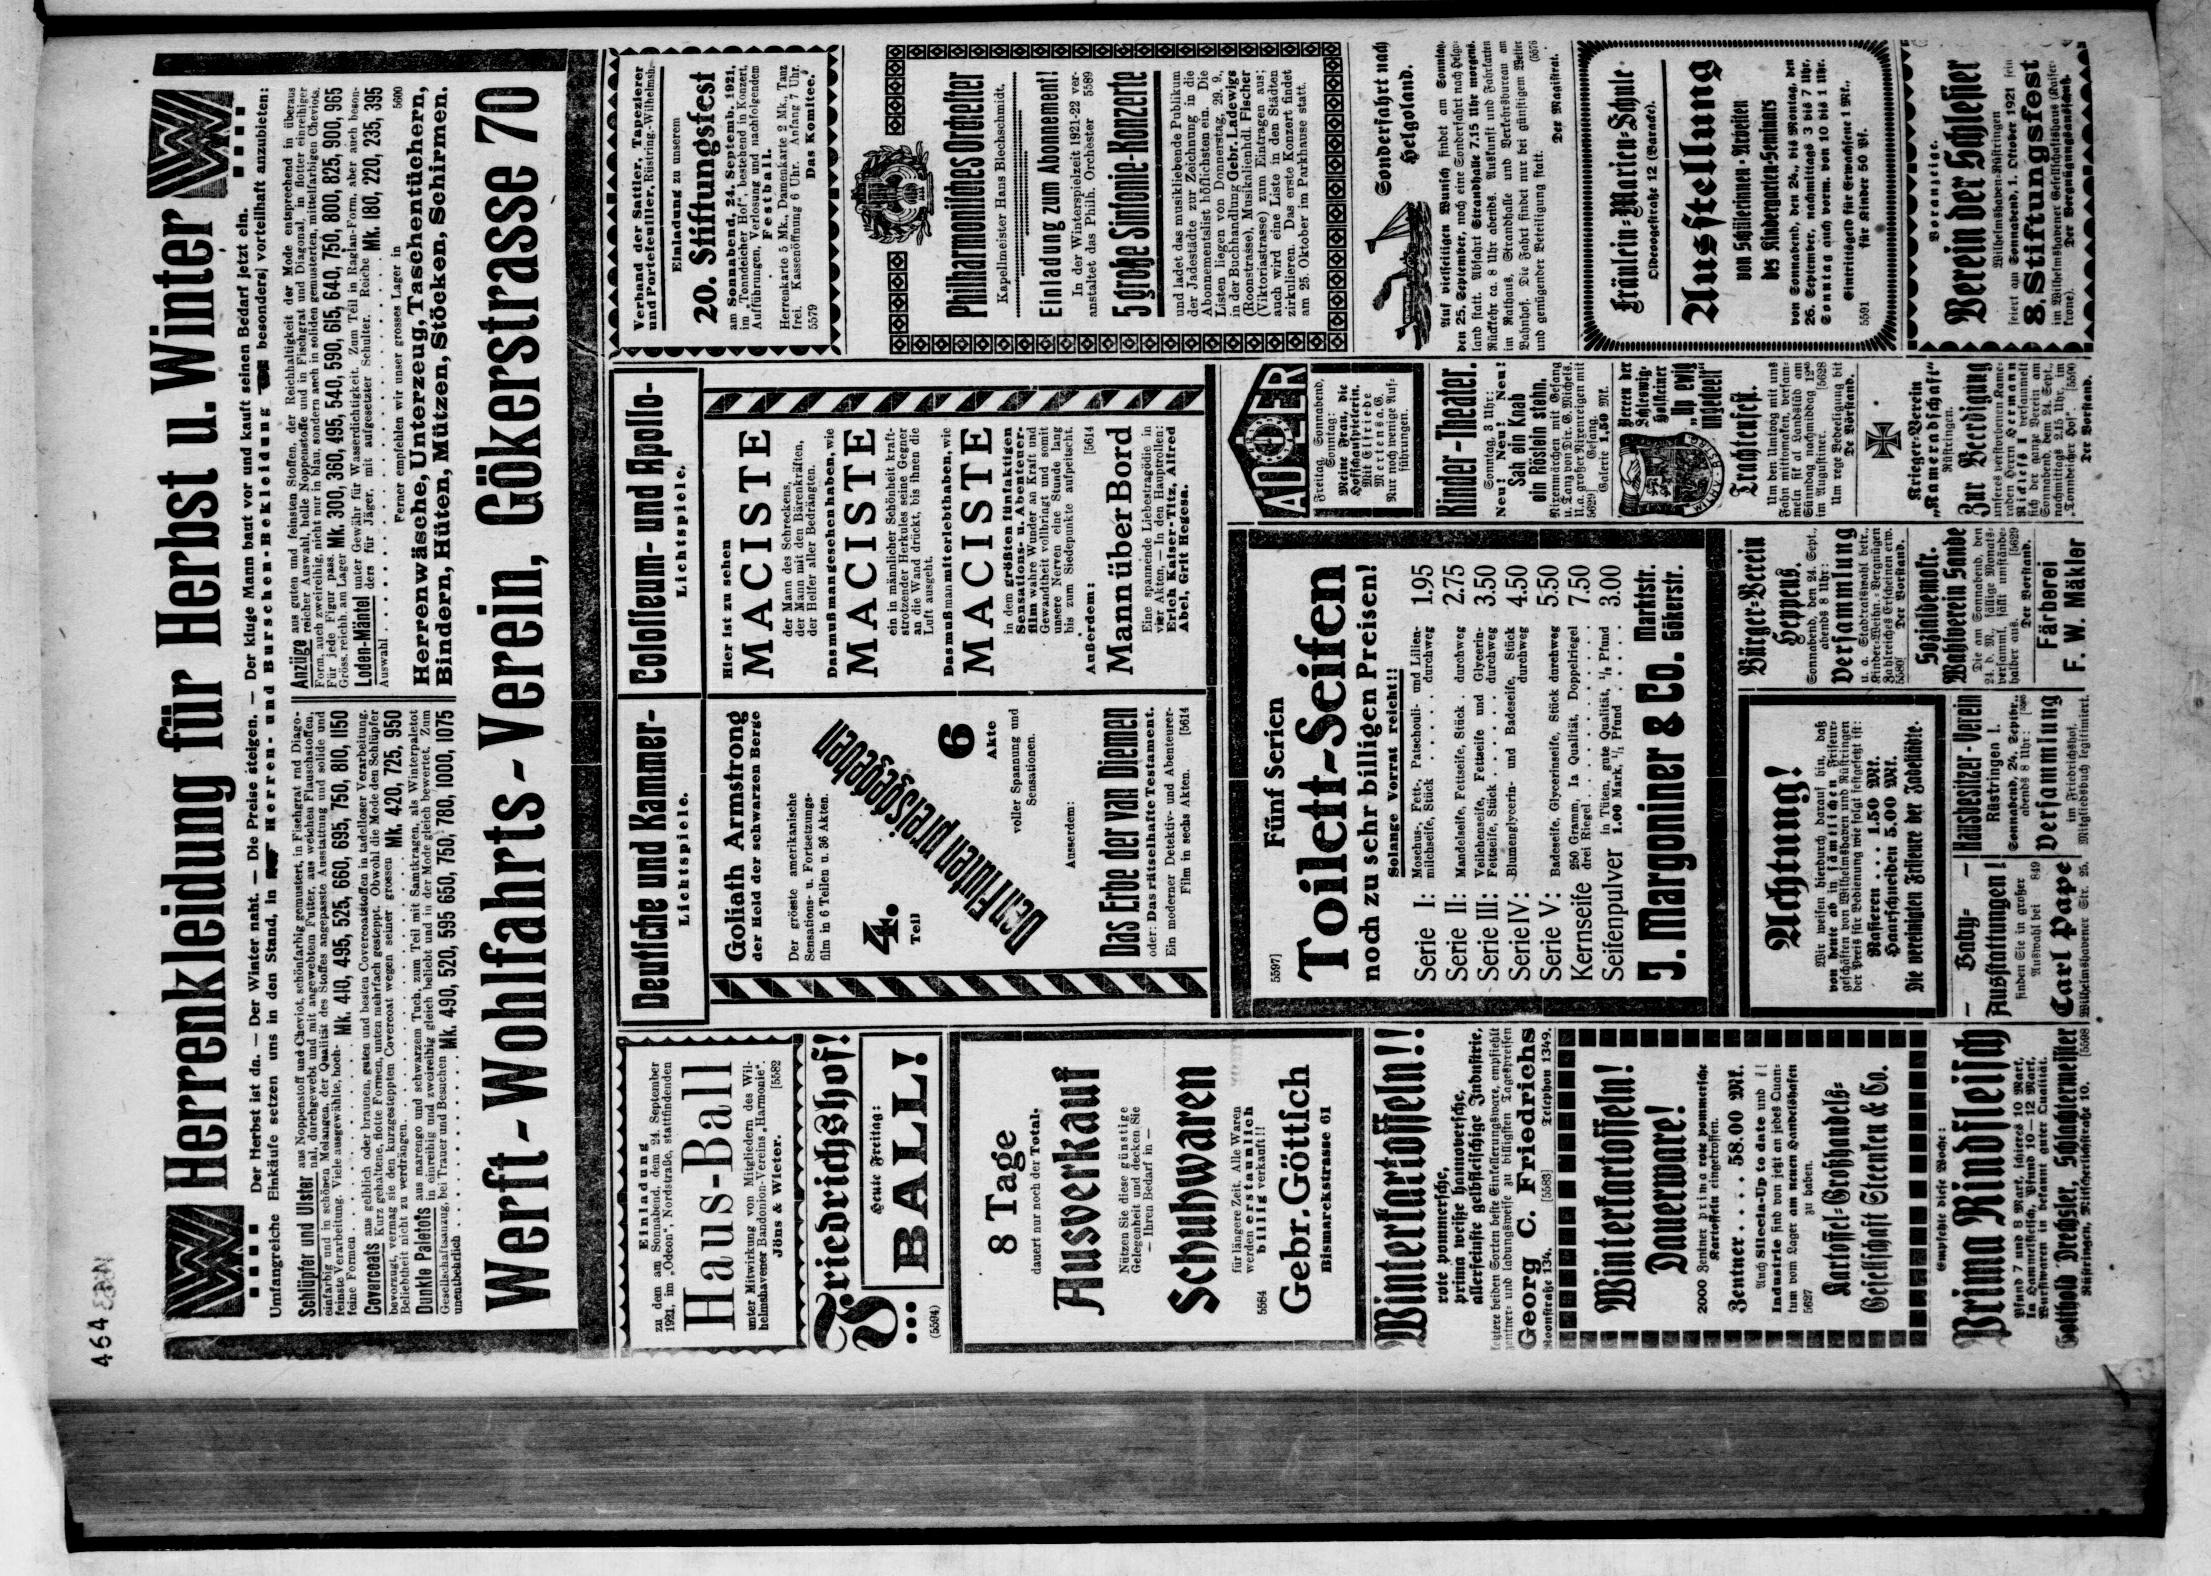 464
Herrenkleidung für Herbst u. Winter
Der Herbst ist da. — Der Winter naht. — Die Preise steigen. — Der kluge Mann baut vor und kauft seinen Bedarf jetzt ein.
Umfangreiche Einkäufe setzen uns in den Stand, in Herren- und Burschen-Bekleidung besonders vorteilhaft anzubieten:
Schlüpfer und Ulster aus Noppenstoff und Cheviot, schönfarbig gemustert, in Fischgrat und Diago-
nal, durchgewebt und mit angewebtem Futter, aus weichen Flauschstoffen,
einfarbig und in schönen Melangen, der Qualität des Stoffes angepasste Ausstattung und solide und
feinste Verarbeitung. Viele ausgewählte, hoch-
feine Formen . . . Mk. 410, 495, 525, 660, 695, 750, 810, 1150
Covercoats aus gelblich oder braunen, guten und besten Covercoatstoffen in tadelloser Verarbeitung.
Kurz gehaltene, flotte Formen, unten mehrfach gesteppt. Obwohl die Mode den Schlüpfer
bevorzugt, vermag sie den kurzgesteppten Covercoat wegen seiner grossen
Beliebtheit nicht zu verdrängen . . . Mk. 420, 725, 950
Dunkle Paletots aus marengo und schwarzem Tuch, zum Teil mit Samtkragen, als Winterpaletot
in einreihig und zweireihig gleich beliebt und in der Mode gleich bewertet. Zum
Gesellschaftsanzug, bei Trauer und Besuchen
unentbehrlich . . . Mk. 490, 520, 595 650, 750, 780, 1000, 1075
Anzüge aus guten und feinsten Stoffen, der Reichhaltigkeit der Mode entsprechend in überaus
reicher Auswahl, helle Noppenstoffe und in Fischgrat und Diagonal, in flotter einreihiger
Form, auch zweireihig, nicht nur in blau, sondern auch in soliden gemusterten, mittelfarbigen Cheviots.
Für jede Figur pass.
Gröss. reichh. am Lager Mk. 300, 360, 495, 540, 590, 615, 640, 750, 800, 825, 900, 965
Loden-Mäntel unter Gewähr für Wasserdichtigkeit. Zum Teil in Raglan-Form, aber auch beson-
ders für Jäger, mit aufgesetzter Schulter. Reiche
Auswahl . . . Mk. 180, 220, 235, 395
Ferner empfehlen wir unser grosses Lager in 5600
Herrenwäsche, Unterzeug, Taschentüchern,
Bindern, Hüten, Mützen, Stöcken, Schirmen.
Werft-Wohlfahrts-Verein, Gökerstrasse 70
Einladung
zu dem am Sonnabend, dem 24. September
1921, im „Odeon“, Nordstraße, stattfindenden
Haus-Ball
unter Mitwirkung von Mitgliedern des Wil-
helmshavener Bandonion-Vereins „Harmonie“.
Jöns & Wieter. [5582
Friedrichshof!
Heute Freitag:
BALL!
(5594)
8 Tage
dauert nur noch der Total-
Ausverkauf
Nützen Sie diese günstige
Gelegenheit und decken Sie
— Ihren Bedarf in —
Schuhwaren
für längere Zeit. Alle Waren
werden erstaunlich
5584 billig verkauft!!
Gebr. Göttlich
Bismarckstrasse 61
Winterkartoffeln!!
rote pommersche,
prima weiße hannoversche,
allerfeinste gelbfleischige Industrie,
letztere beiden Sorten beste Einkellerungsware, empfiehlt
zentner- und ladungsweise zu billigsten Tagespreisen
Georg C. Friedrichs
Roonstraße 134. [5583] Telephon 1349.
Winterkartoffeln!
Dauerware!
2000 Zentner prima rote pommersche
Kartoffeln eingetroffen.
Zentner . . . . 58.00 Mk.
Auch Silecia-Up to date und
Industrie sind von jetzt an jedes Quan-
tum vom Lager am neuen Handelshafen
5627 zu haben.
Kartoffel-Großhandels-
Gesellschaft Steenken & Co.
Empfehle diese Woche:
Prima Rindfleisch
Pfund 7 und 8 Mark, fettes 10 Mark.
Ia Hammelfleisch, Pfund 10—12 Mark.
Wurstwaren in bekannt guter Qualität.
Gotthold Drechsler, Schlachtermeister
Rüstringen, Mitscherlichstraße 10. [5598
Deutsche und Kammer-
Lichtspiele.
Goliath Armstrong
der Held der schwarzen Berge
Der grösste amerikanische
Sensations- u. Fortsetzungs-
film in 6 Teilen u. 36 Akten.
4.
Teil
Den Fluten preisgegeben
6
Akte
voller Spannung und
Sensationen.
Ausserdem:
Das Erbe der van Diemen
oder: Das rätselhafte Testament.
Ein moderner Detektiv- und Abenteurer-
Film in sechs Akten. [5614
Colosseum- und Apollo-
Lichtspiele.
Hier ist zu sehen
MACISTE
der Mann des Schreckens,
der Mann mit den Bärenkräften,
der Helfer aller Bedrängten.
Das muß man gesehen haben, wie
MACISTE
ein in männlicher Schönheit kraft-
strotzender Herkules seine Gegner
an die Wand drückt, bis ihnen die
Luft ausgeht.
Das muß man miterlebt haben, wie
MACISTE
in dem größten fünfaktigen
Sensations- u. Abenteuer-
film wahre Wunder an Kraft und
Gewandtheit vollbringt und somit
unsere Nerven eine Stunde lang
bis zum Siedepunkte aufpeitscht.
Außerdem: [5614
Mann über Bord
Eine spannende Liebestragödie in
vier Akten. — In den Hauptrollen:
Erich Kaiser-Titz, Alfred
Abel, Grit Hegesa.
5597]
Fünf Serien
Toilett-Seifen
noch zu sehr billigen Preisen!
Solange Vorrat reicht!!
Serie I: Moschus-, Fett-, Patschouli- und Lilien-
milchseife, Stück . . . . . durchweg 1.95
Serie II: Mandelseife, Fettseife, Stück . durchweg 2.75
Serie III: Veilchenseife, Fettseife und Glycerin-
Fettseife, Stück . . . . . durchweg 3.50
Serie IV: Blumenglycerin- und Badeseife, Stück
durchweg 4.50
Serie V: Badeseife, Glycerinseife, Stück durchweg 5.50
Kernseife 250 Gramm, Ia Qualität, Doppelriegel
drei Riegel . . . . . 7.50
Seifenpulver in Tüten, gute Qualität, ½ Pfund
1.00 Mark, 1/1 Pfund . . . . 3.00
J. Margoniner & Co. Marktstr.
Gökerstr.
Achtung!
Wir weisen hierdurch darauf hin, daß
von heute ab in sämtlichen Friseur-
geschäften von Wilhelmshaven und Rüstringen
der Preis für Bedienung wie folgt festgesetzt ist:
Rasieren . . . 1.50 Mk.
Haarschneiden 5.00 Mk.
Die vereinigten Friseure der Jadestädte.
— Baby- —
Ausstattungen!
finden Sie in großer
Auswahl bei 849
Carl Pape
Wilhelmshavener Str. 25.
Hausbesitzer-Verein
Rüstringen I.
Sonnabend, 24. Septbr.
abends 8 Uhr:
Versammlung
im Friedrichshof.
Mitgliedsbuch legitimiert.
Bürger-Verein
Heppens.
Sonnabend, den 24. Sept.,
abends 8 Uhr:
Versammlung
u. a. Stadtratswahl betr.,
Kinder-Weihn.-Vergnügen
Zahlreiches Erscheinen erw.
5580[ Der Vorstand.
Sozialdemokr.
Wahlverein Sande
Die am Sonnabend, den
24. d. M. fällige Monats-
versamml. fällt umstände-
halber aus. [5629
Der Vorstand.
Färberei
F. W. Mäkler
ADLER
Freitag, Sonnabend,
Sonntag:
Meine Frau, die
Hofschauspielerin.
Mit Elfriede
Mertens a. G.
Nur noch wenige Auf-
führungen.
Kinder-Theater.
Sonntag, 3 Uhr:
Neu! Neu! Neu!
Sah ein Knab
ein Röslein stehn.
u. Tanz von Dir. G. Michels.
U. a. großer Nixenreigen mit
5629 Gesang.
Galerie 1,50 Mk.
Vereen der
Schleswig-
Holsteiner
„Up ewig
ungedeelt“
Trachtenfest.
Um den Umtoog mit uns
Fahn mittomaken, versam-
meln sik al Landslüd am
Sünndag nachmiddag
im Augustiner. [5628
Um rege Bedeeligung bit
De Vörstand.
Krieger-Verein
„Kameradschaft“
Rüstringen.
Zur Beerdigung
unseres verstorbenen Kame-
raden Herrn Hermann
Ridless I versammelt
sich der ganze Verein am
Sonnabend, dem 24. Sept.,
nachmittags 2.15 Uhr, im
„Tonndeicher Hof“. [5590
Der Vorstand.
Verband der Sattler, Tapezierer
und Portefeuiller, Rüstring.-Wilhelmsh.
Einladung zu unserem
20. Stiftungsfest
am Sonnabend, 24. Septemb. 1921,
im „Tondeicher Hof“ bestehend in Konzert,
Aufführungen, Verlosung und nachfolgendem
Festball.
Herrenkarte 5 Mk., Damenkarte 2 Mk., Tanz
frei. Kassenöffnung 6 Uhr. Anfang 7 Uhr.
5579 Das Komitee.
Philharmonisches Orchester
Kapellmeister Hans Blechschmidt.
Einladung zum Abonnement!
In der Winterspielzeit 1921-22 ver-
anstaltet das Philh. Orchester 5589
5 große Sinfonie-Konzerte
und ladet das musikliebende Publikum
der Jadestädte zur Zeichnung in die
Abonnementslist höflichsten ein. Die
Listen liegen von Donnerstag, 29. 9.,
in der Buchhandlung Gebr. Ladewigs
(Roonstrasse), Musikalienhdl. Fischer
(Viktoriastrasse) zum Eintragen aus;
auch wird eine Liste in den Städten
zirkulieren. Das erste Konzert findet
am 25. Oktober im Parkhause statt.
Sonderfahrt nach
Helgoland.
Auf vielseitigen Wunsch findet am Sonntag,
den 25. September, noch eine Sonderfahrt nach Helgo-
land statt. Abfahrt Strandhalle 7.15 Uhr morgens.
Rückkehr ca. 8 Uhr abends. Auskunft und Fahrkarten
im Rathaus, Strandhalle und Verkehrsbureau am
Bahnhof. Die Fahrt findet nur bei günstigem Wetter
und genügender Beteiligung statt. (5576
Der Magistrat.
Fräulein-Marien-Schule
Oldeoogestraße 12 (Barade).
Ausstellung
von Schülerinnen-Arbeiten
des Kindergarten-Seminars
von Sonnabend, den 24., bis Montag, den
26. September, nachmittags 3 bis 7 Uhr.
Sonntag auch vorm. von 10 bis 1 Uhr.
Eintrittsgeld für Erwachsene 1 Mk.,
5591 für Kinder 50 Pf.
Voranzeige.
Verein der Schlesier
Wilhelmshaven-Rüstringen
feiert am Sonnabend, 1. Oktober 1921 sein
8. Stiftungsfest
im Wilhelmshavener Gesellschaftshaus (Kaiser-
krone). Der Vergnügungsausschuß.